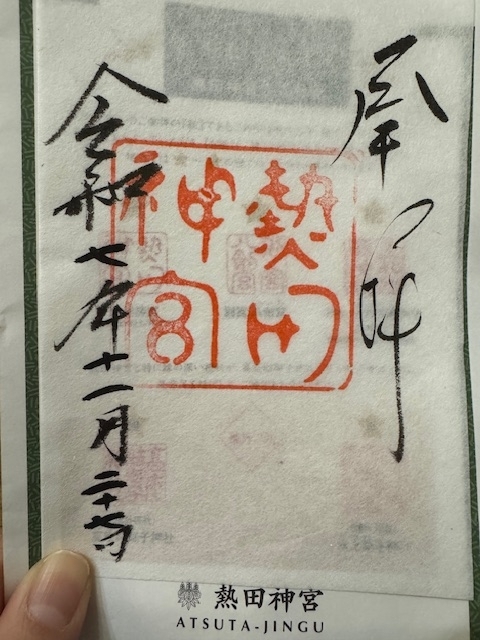 奉拝
熱田神宮
令和七年十一月二十七日
熱田神宮
ATSUTA-JINGU